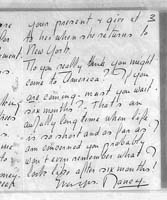 3
your present & give it
to her when she returns to
New York.
Do you really think you might
come to America? If you
are coming - must you wait
six months? That's an
awfully long time when life
is so short and as far as I
am concerned you probably
won't even remember what I
look like after six months!
Nancy